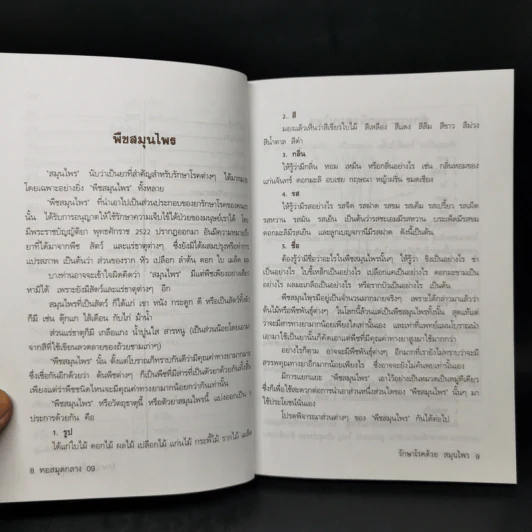 พืชสมุนไพร
'สมุนไพร' นับว่าเป็นยาที่สำคัญสำหรับรักษาโรคต่างๆ ได้มากมาย
โดยเฉพาะอย่างยิ่ง 'พืชสมุนไพร' ทั้งหลาย
'พืชสมุนไพร' ที่นำเอาไปเป็นส่วนประกอบของยารักษาโรคของหมอ
นั้น ได้รับการอนุญาตให้ใช้รักษาความเจ็บไข้ได้ป่วยของมนุษย์เราได้ โดย
มีพระราชบัญญัติยา พุทธศักราช 2522 ปรากฏออกมา อันมีความหมายถึง
ยาที่ได้มาจากพืช สัตว์ และแร่ธาตุต่างๆ ซึ่งยังมิได้ผสมปรุงหรือทำการ
แปรสภาพ เป็นต้นว่า ส่วนของราก หัว เปลือก ลำต้น ดอก ใบ เมล็ด ผล
บางท่านอาจจะเข้าใจผิดคิดว่า 'สมุนไพร' มีแต่พืชเพียงอย่างเดียว
หามิได้ เพราะยังมีสัตว์และแร่ธาตุต่างๆ อีก
สมุนไพรที่เป็นสัตว์ ก็ได้แก่ เขา หนัง กระดูก ดี หรือเป็นสัตว์ทั้งตัว
ก็มี เช่น ตุ๊กแก ไส้เดือน กับไก่ ม้าน้ำ
ส่วนแร่ธาตุก็มี เกลือแกง น้ำปูนใส สารหนู (เป็นส่วนน้อยโดยเอามา
จากสีที่ใช้เขียนลวดลายของถ้วยชามเก่าๆ)
'พืชสมุนไพร' นั้น ตั้งแต่โบราณก็ทราบกันดีว่ามีคุณค่าทางยามากมาย
ซึ่งเชื่อกันอีกด้วยว่า ต้นพืชต่างๆ ก็เป็นพืชที่มีสารที่เป็นตัวยาด้วยกันทั้งสิ้น
เพียงแต่ว่าพืชชนิดไหนจะมีคุณค่าทางยามากน้อยกว่ากันเท่านั้น
'พืชสมุนไพร' หรือวัตถุธาตุนี้ หรือตัวยาสมุนไพรนี้ แบ่งออกเป็น 5
ประการด้วยกัน คือ
1. รูป
ได้แก่ใบไม้ ดอกไม้ ผลไม้ เปลือกไม้ แก่นไม้ กระพี้ไม้ รากไม้ เมล็ด
8 หอสมุดกลาง 09
2. สี
มองแล้วเห็นว่าสีเขียวใบไม้ สีเหลือง สีแดง สีส้ม สีขาว สีม่วง
สีน้ำตาล สีดำ
3. กลิ่น
ให้รู้ว่ามีกลิ่น หอม เหม็น หรือกลิ่นอย่างไร เช่น กลิ่นหอมของ
แก่นจันทร์ ดอกมะลิ อบเชย กฤษณา หญ้าฝรั่น ชะมดเชียง
4. รส
ให้รู้ว่ามีรสอย่างไร รสจืด รสฝาด รสขม รสเค็ม รสเปรี้ยว รสเผ็ด
รสหวาน รสมัน รสเย็น เป็นต้นว่ารสชะเอมมีรสหวาน มะระขี้นกมีรสขม
ดอกมะลิมีรสเย็น และลูกเบญกานีมีรสฝาด ดังนี้เป็นต้น
5. ชื่อ
ต้องรู้ว่ามีชื่อว่าอะไรในพืชสมุนไพรนั้นๆ ให้รู้ว่า ขิงเป็นอย่างไร ข่า
เป็นอย่างไร ใบขี้เหล็กเป็นอย่างไร เปลือกแคเป็นอย่างไร ดอกมะขามเป็น
อย่างไร ผลมะเกลือเป็นอย่างไร หรือรากบัวเป็นอย่างไร เป็นต้น
พืชสมุนไพรมีอยู่เป็นจำนวนมากมายจริงๆ เพราะได้กล่าวมาแล้วว่า
ต้นไม้หรือพืชพันธุ์ต่างๆ ในโลกนี้ล้วนแต่เป็นพืชสมุนไพรทั้งนั้น สุดแท้แต่
ว่าจะมีสารทางยามากน้อยเพียงใดเท่านั้นเอง และเท่าที่แพทย์แผนโบราณนำ
เอามาใช้เป็นยานั้นก็คัดเอาแต่พืชที่มีคุณค่าทางยาสูงมาใช้มากกว่า
อย่างไรก็ตาม อาจจะมีพืชพันธุ์ต่างๆ อีกมากที่เรายังไม่ทราบว่าจะมี
สรรพคุณทางยามากน้อยเพียงไร ซึ่งอาจจะยังไม่ค้นพบเท่านั้นเอง
มีการแยกแยะ 'พืชสมุนไพร' เอาไว้อย่างเป็นหมวดเป็นหมู่ทีเดียว
ซึ่งก็เพื่อให้สะดวกต่อการนำเอาส่วนหนึ่งส่วนใดของ 'พืชสมุนไพร' นั้นๆ มา
ใช้ประโยชน์นั่นเอง
โปรดพิจารณาส่วนต่างๆ ของ 'พืชสมุนไพร' กันได้ต่อไป
รักษาโรคด้วย สมุนไพร 9